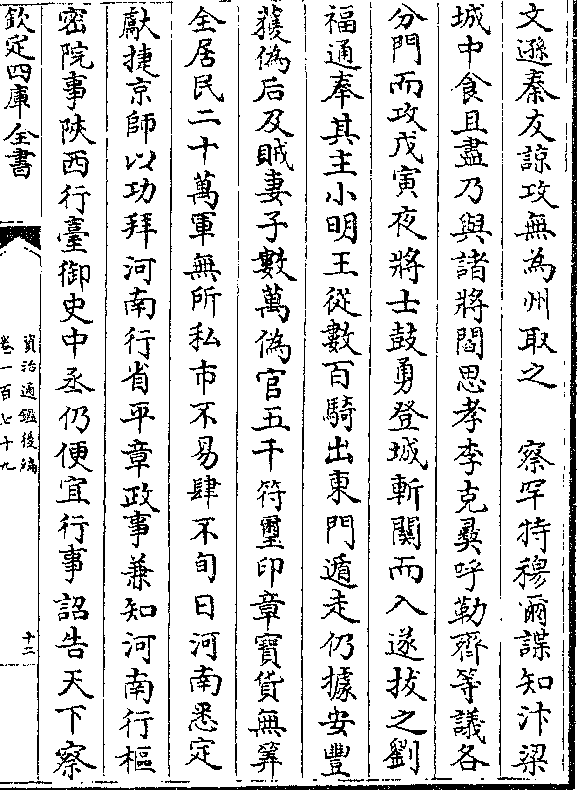 文遜秦友諒攻無為州取之　察罕特穆爾諜知汴梁
城中食且盡乃與諸將閻思孝李克彞呼勒齊等議各
分門而攻戊寅夜將士鼓勇登城斬關而入遂拔之劉
福通奉其主小明王從數百騎出東門遁走仍據安豐
獲偽后及賊妻子數萬偽官五千符璽印章寶貨無筭
全居民二十萬軍無所私市不易肆不旬日河南悉定
獻捷京師以功拜河南行省平章政事兼知河南行樞
密院事陝西行臺御史中丞仍便宜行事詔告天下察
欽定四庫全書
資治通鑑後編
卷一百七十九
十二